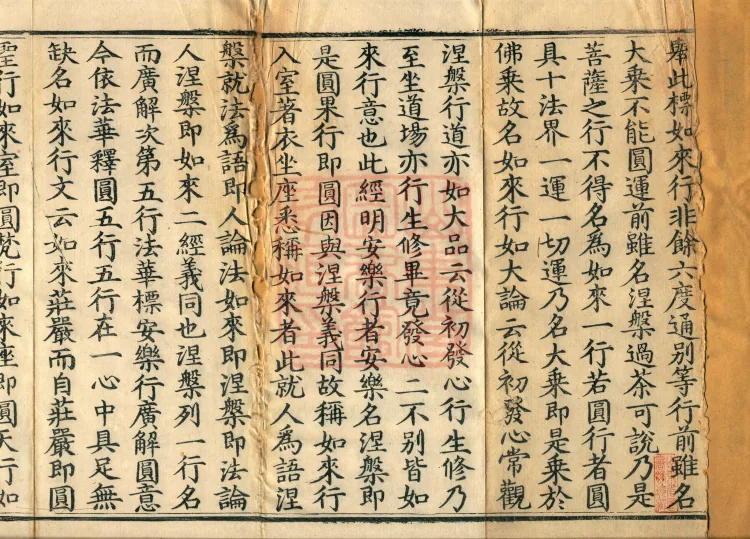 舉此標如來行非餘六度通別等行前雖名
大乘不能圓運前雖名涅槃過茶可說乃是
菩薩之行不得名為如來一行若圓行者圓
具十法界一運一切運乃名大乘即是乘於
佛乘故名如來行如大論云從初發心常觀
涅槃行道亦如大品云從初發心行生修乃
至坐道場亦行生修畢竟發心二不別皆如
來行意也此經明安樂行者安樂名涅槃即
是圓果行即圓因與涅槃義同故稱如來行
入室著衣坐座悉稱如來者此就人為語涅
槃就法為語即人論法如來即涅槃即法論
人涅槃即如來二經義同也涅槃列一行名
而廣解次第五行法華標安樂行廣解圓意
今依法華釋圓五行五行在一心中具足無
缺名如來行文云如來莊嚴而自莊嚴即圓
聖行如來室即圓梵行如來座即圓天行如